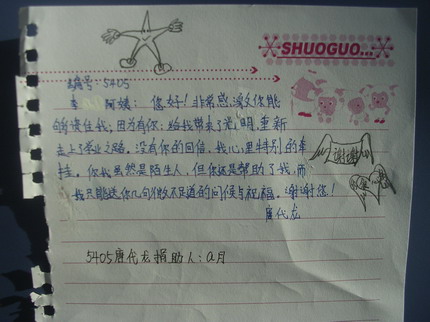 SHUOGUO...
编号:5405
李 阿姨：您好！非常感激你能
够接住我，因为有你，给我带来了光明，重新
走上了学业之路。没有你的回信，我心里特别的牵
挂。你我虽然是陌生人，但你还是帮助了我，而
我只能送你几句微不足道的问候与祝福。谢谢您！
唐代龙
谢谢
5405唐代龙捐助人：a月